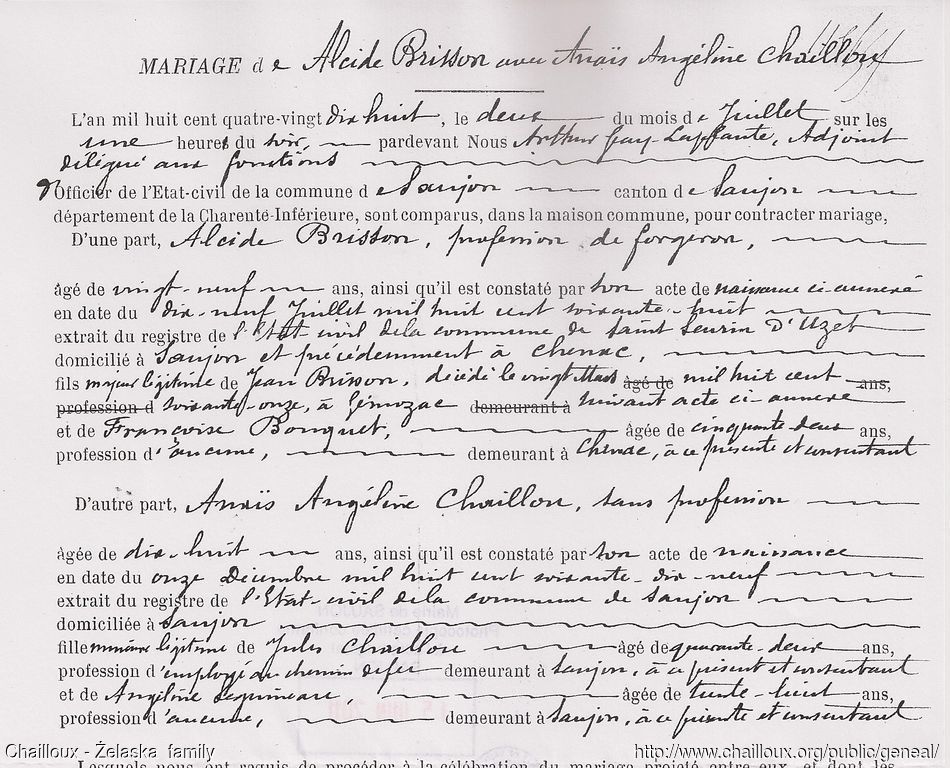 MARIAGE de Alcide Brisson avec Anaïs Angéline Chaillou
L'an mil huit cent quatre-vingt dix huit, le deux du mois de Juillet sur les
une heures du soir, pardevant Nous Arthur Adjoint
délégué aux fonctions
d'Officier de l'Etat-civil de la commune de Saujon canton de Saujon
département de la Charente-Inférieure, sont comparus, dans la maison commune, pour contracter mariage,
D'une part, Alcide Brisson, profession de forgeron,
âgé de vingt-neuf ans, ainsi qu'il est constaté par son acte de naissance ci-annexé
en date du dix-neuf Juillet mil huit cent soixante-huit
extrait du registre de l'Etat civil de la commune de Saint Seurin D'Uzet
domicilié à Saujon et précédemment à Chenac,
fils majeur légitime de Jean Brisson, décédé le vingt Mars âgé de mil huit cent ans,
profession d soixante-onze, à Gémozac demeurant à suivant acte ci-annexé
et de Françoise Bouquet, âgée de cinquante-deux ans,
profession d'aucune, demeurant à Chenac, à ce présente et consentant
D'autre part, Anaïs Angéline Chaillou, sans profession
âgée de dix-huit ans, ainsi qu'il est constaté par son acte de naissance
en date du onze Décembre mil huit cent soixante-dix-neuf
extrait du registre de l'Etat-civil de la commune de Saujon
domiciliée à Saujon
fille mineure légitime de Jules Chaillou âgé de quarante-deux ans,
profession d'employé au chemin de fer demeurant à Saujon, à ce présent et consentant
et de Angéline âgée de trente-huit ans,
profession d'aucune, demeurant à Saujon, à ce présente et consentant
Chailloux - Żelaska family http://www.chailloux.org/public/geneal/
Lesquels nous ont requis de procéder à la célébration du mariage projeté entre eux, et dont les